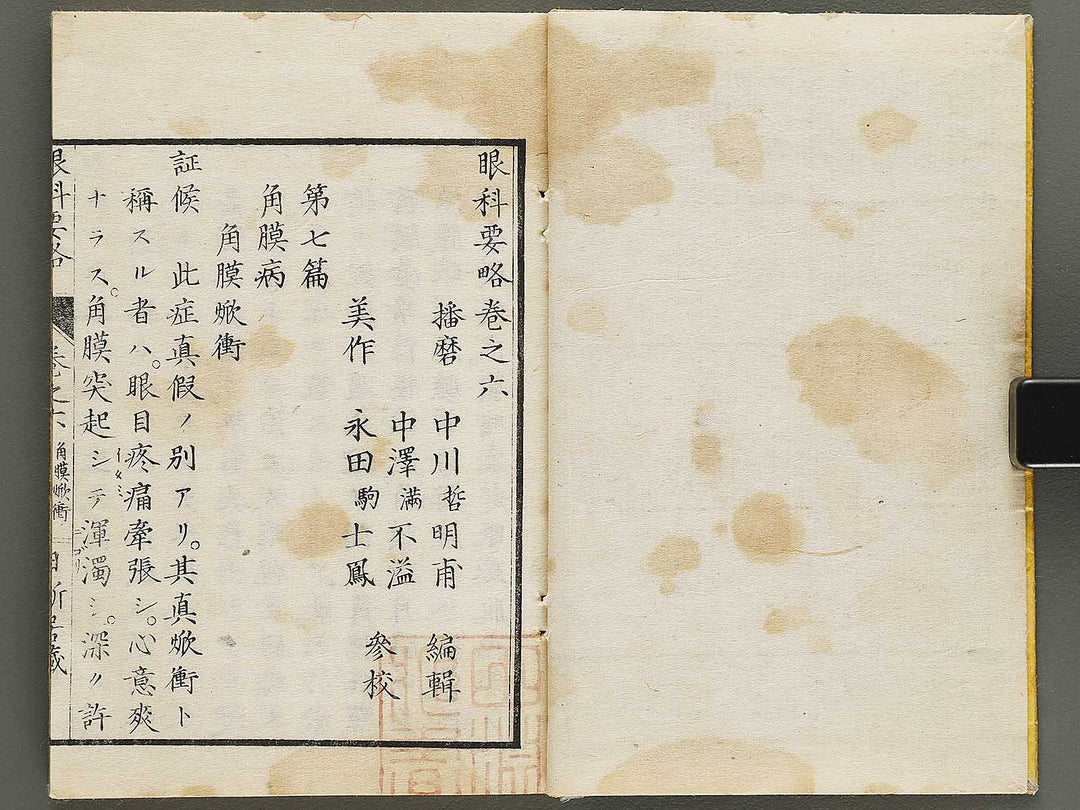 眼科要略卷之六
播磨 中川哲明甫 編輯
中澤滿不溢
美作 永田駒士鳳 參校
第七篇
角膜病
角膜焮衝
証候 此症真假ノ別アリ。其真焮衝ト
稱スル者ハ。眼目疼痛牽張シ。心意爽
イタミ
ナラス。角膜突起シテ渾濁シ。深ク許
眼科要略 卷之六 角膜焮衝